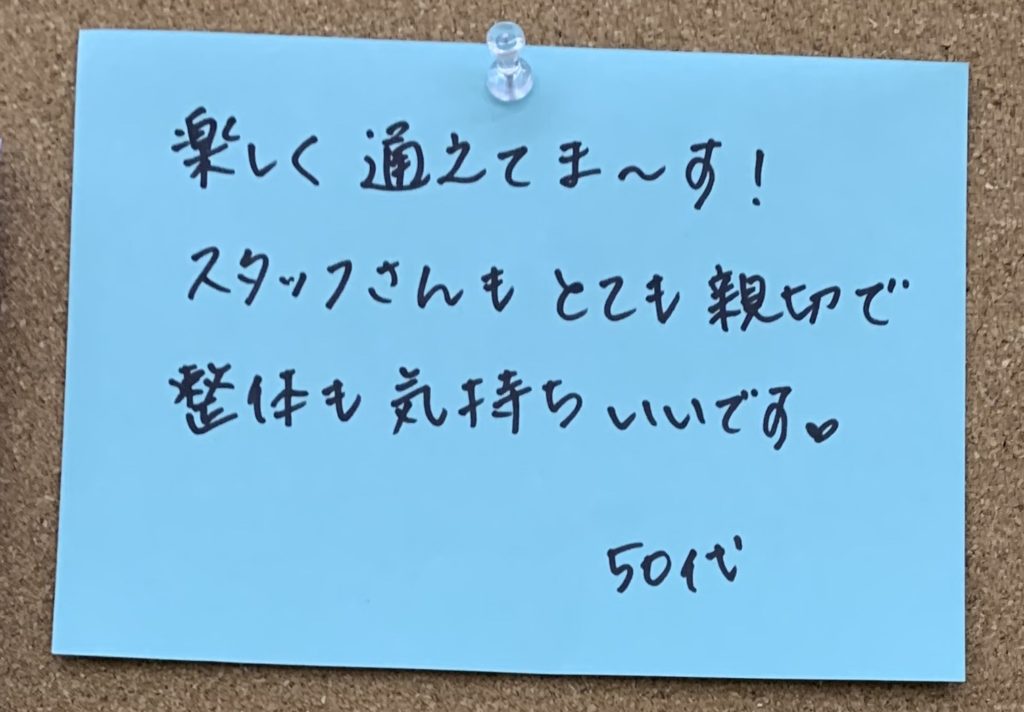 楽しく 通えてま〜す!
スタッフさんも とても 親切で
整体も 気持ち いいです♥
50代